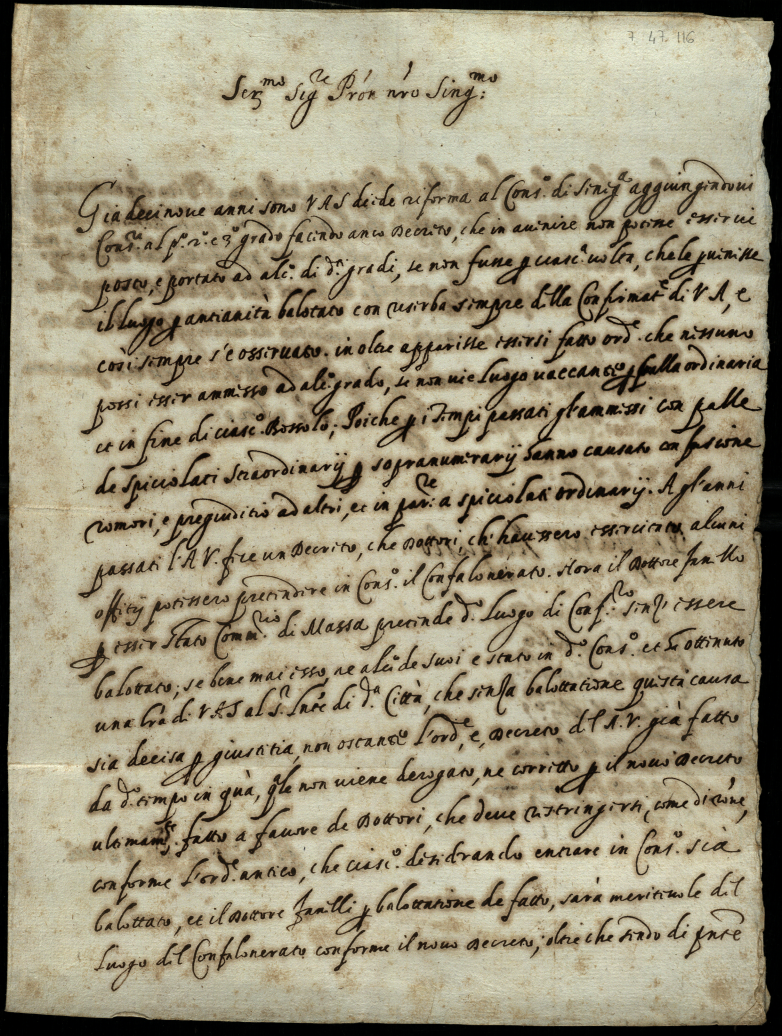 7. 47. 116
Ser.mo Sig.re Pron nro Sing.mo:
Già decinove anni sono V A S diede riforma al Cons.o di Sinig.a aggiungendovi
Cons.ri al p.o 2.o e 3.o grado facendo anco Decreto, che in avenire non potesse esservi
posto, e portato ad alc.o di d.i gradi, se non fusse p ciasc.a volta, che le venisse
il luogo p antianità balotato con riserba sempre della Confirmat.e di V A, e
così sempre s'è osservato. in oltre apparisse essersi fatto ord.e che nissuno
possi esser ammesso ad alc.o grado, se non vie luogo vaccante, p palla ordinaria
et in fine di ciasc.o Bossolo; Poiche p i Tempi passati gl'ammessi con palle
de spiciolati straordinarij p sopranumerarij hanno causato confusione
romori, e pregiuditio ad altri, et in par.re a spiciolati ordinarij. A gl'anni
passati l'A V. fece un Decreto, che Dottori, ch'havessero essercitato alcuni
offitij potessero pretendere in Cons.o il Confalonerato. Hora il Dottore
p esser stato Comm.rio di Massa pretende d.o luogo di Conf.ro senz'essere
balottato; se bene mai esso, ne alc.o de suoi e stato in d.o Cons.o et hà ottenuto
una lra di V A S al s.r Lnte di d.a Città, che senza balottatione questa causa
sia decisa p giustitia, non ostante l'ord.e, e, Decreto del A.V. già fatto
da d.o tempo in quà, qle non viene derogato, ne corretto p il novo Decreto
ultimam.te fatto a favore de Dottori, che deve restringersi, come di rone,
conforme l'ord.e antico, che ciasc.o desiderando entrare in Cons.o sia
balottato, et il Dottore p balottatione de fatto, sarà meritevole del
luogo del Confalonerato conforme il novo Decreto; oltre che sendo di pnte